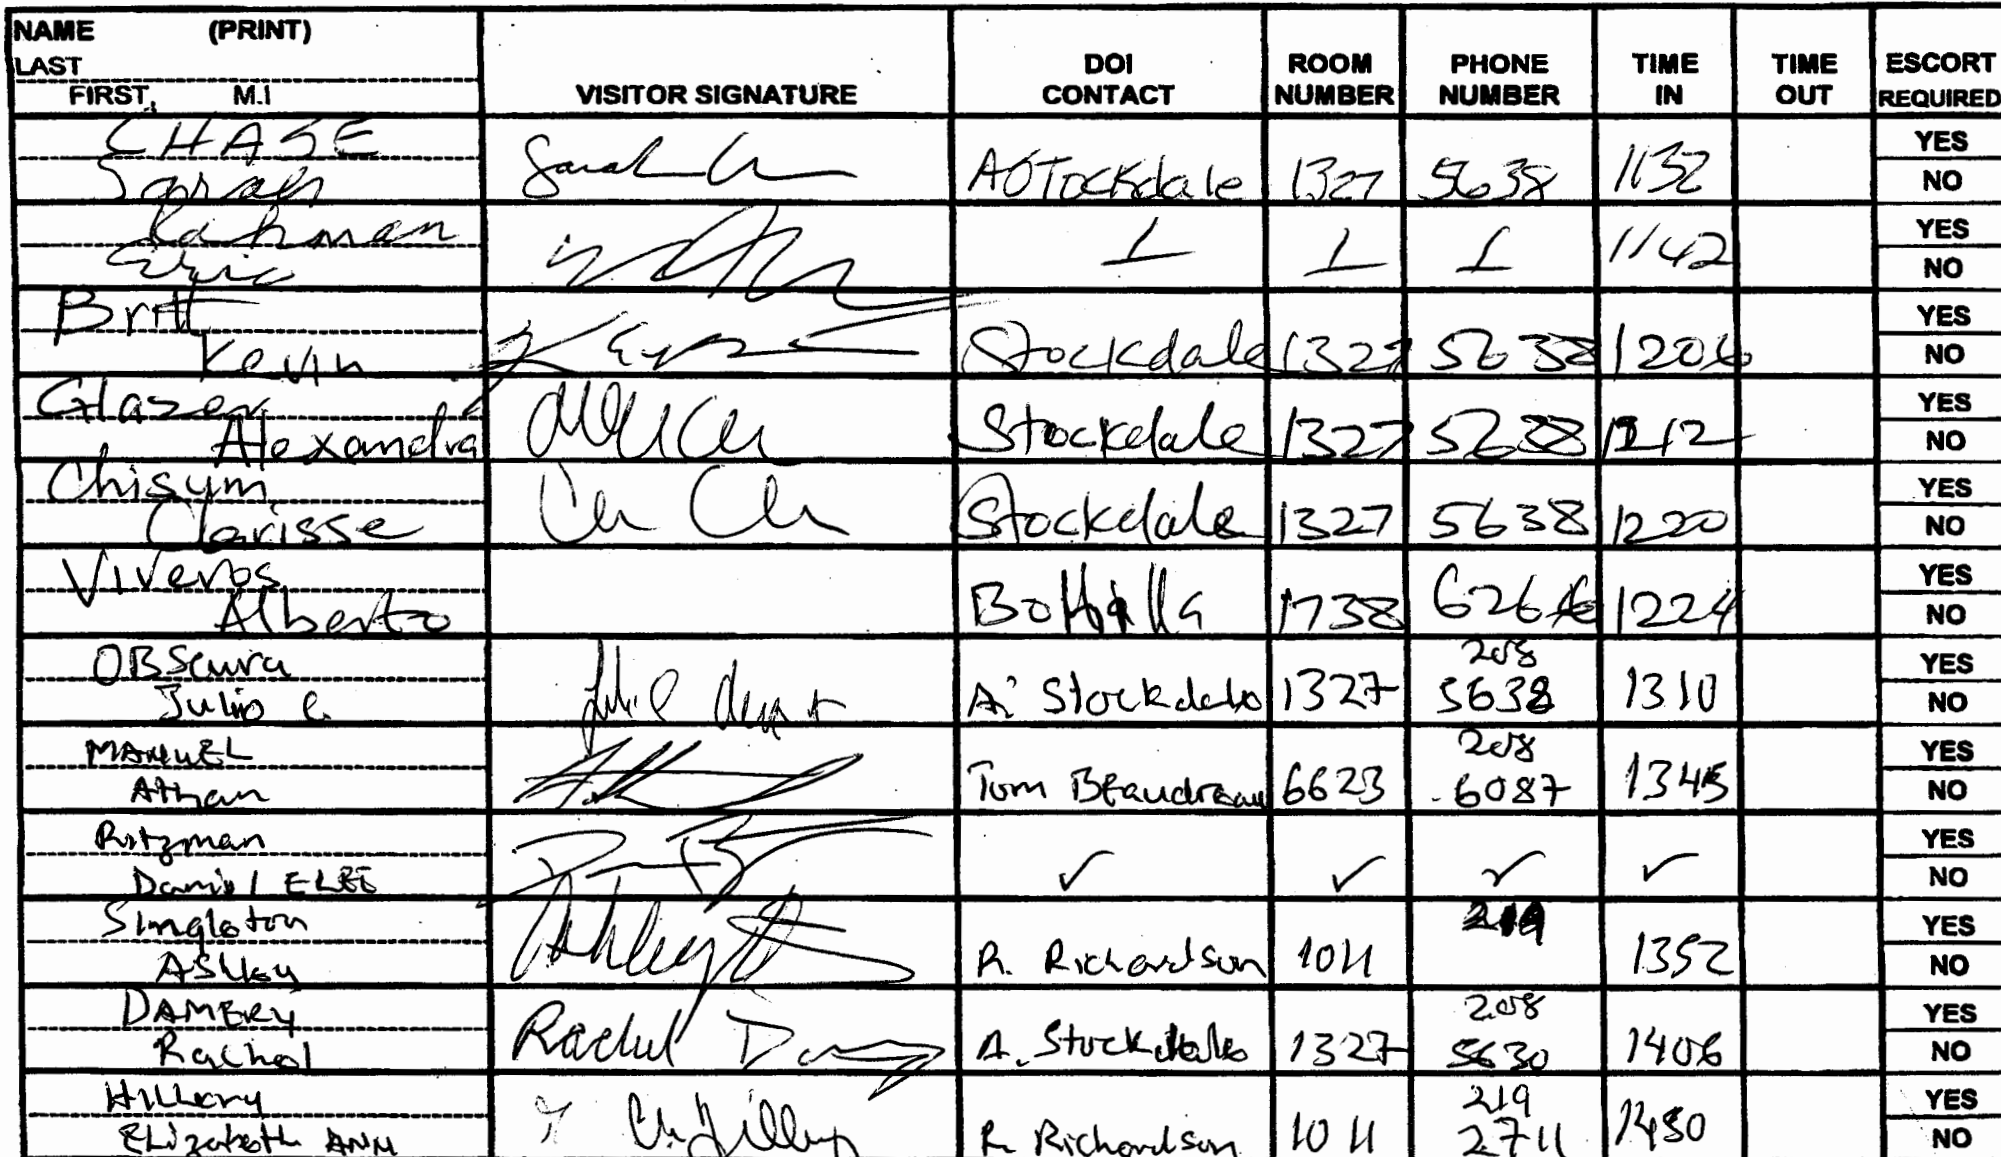 NAME (PRINT)
LAST
FIRST, M.I
VISITOR SIGNATURE
DOI CONTACT
ROOM NUMBER
PHONE NUMBER
TIME IN
TIME OUT
ESCORT REQUIRED
CHASE
Sarah
Sarah
AStockdale 1327 5638 1132
YES
NO
Eric
1142
YES
NO
Britt
Kevin
Stockdale 1327 5638 1206
YES
NO
Glazer
Alexandra
Stockdale 1327 5638 1212
YES
NO
Chisym
Clarisse
Stockdale 1327 5638 1220
YES
NO
Viveros
Alberto
1738 1224
YES
NO
OBScura
Julio C.
A. Stockdale 1327 208 5638 1310
YES
NO
MANUEL
Athan
Tom BEaudreau 6623 208 6087 1345
YES
NO
Ritzman
Daniel
✓ ✓ ✓ ✓
YES
NO
Singleton
Ashley
Ashley
R. Richardson 1011 219 1352
YES
NO
DAMERY
Rachel
Rachel
A. Stockdale 1327 208 5630 1406
YES
NO
Hillery
Elizabeth ANN
R. Richardson 1011 219 2711 1430
YES
NO